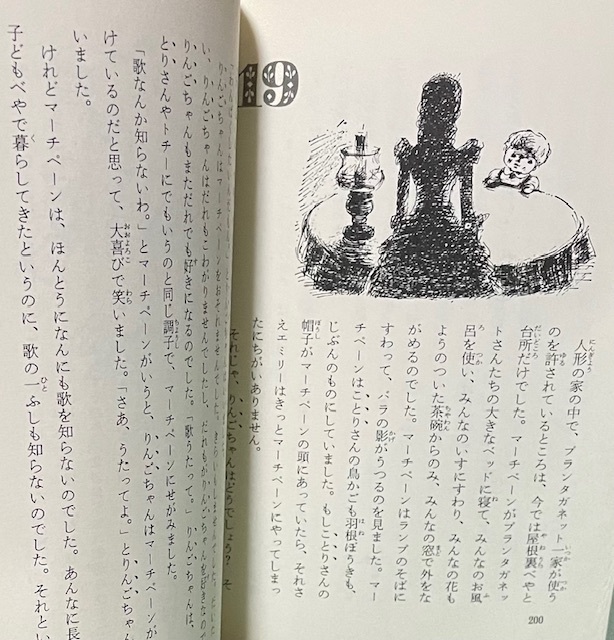 19
人形の家の中で、プランタガネット一家が使う
のを許されているところは、今では屋根裏べやと
台所だけでした。マーチペーンがプランタガネッ
トさんたちの大きなベッドに寝て、みんなのお風
呂を使い、みんなのいすにすわり、みんなの花も
ようのついた茶碗からのみ、みんなの窓で外をな
がめるのでした。マーチペーンはランプのそばに
すわって、バラの影がうつるのを見ました。マー
チペーンはことりさんの鳥かごも羽根ぼうきも、
じぶんのものにしていました。もしことりさんの
帽子がマーチペーンの頭にあっていたら、それさ
えエミリーはきっとマーチペーンにやってしまっ
たにちがいありません。
それじゃ、りんごちゃんはどうでしょう? そ
200
りんごちゃんはマーチペーンをおそれませんでした。
い、りんごちゃんはだれもこわがりませんでしたし、だれもがりんごちゃんを好きなので
りんごちゃんもまただれでも好きになるのでした。「歌うたって。」りんごちゃんは、
とりさんやトチーにでもいうのと同じ調子で、マーチペーンにせがみました。
「歌なんか知らないわ。」とマーチペーンがいうと、りんごちゃんはマーチペーンが
けているのだと思って、大喜びで笑いました。「さあ、うたってよ。」とりんごちゃん
いました。
けれどマーチペーンは、ほんとうになんにも歌を知らないのでした。あんなに長
子どもべやで暮らしてきたというのに、歌の一ふしも知らないのでした。それとい